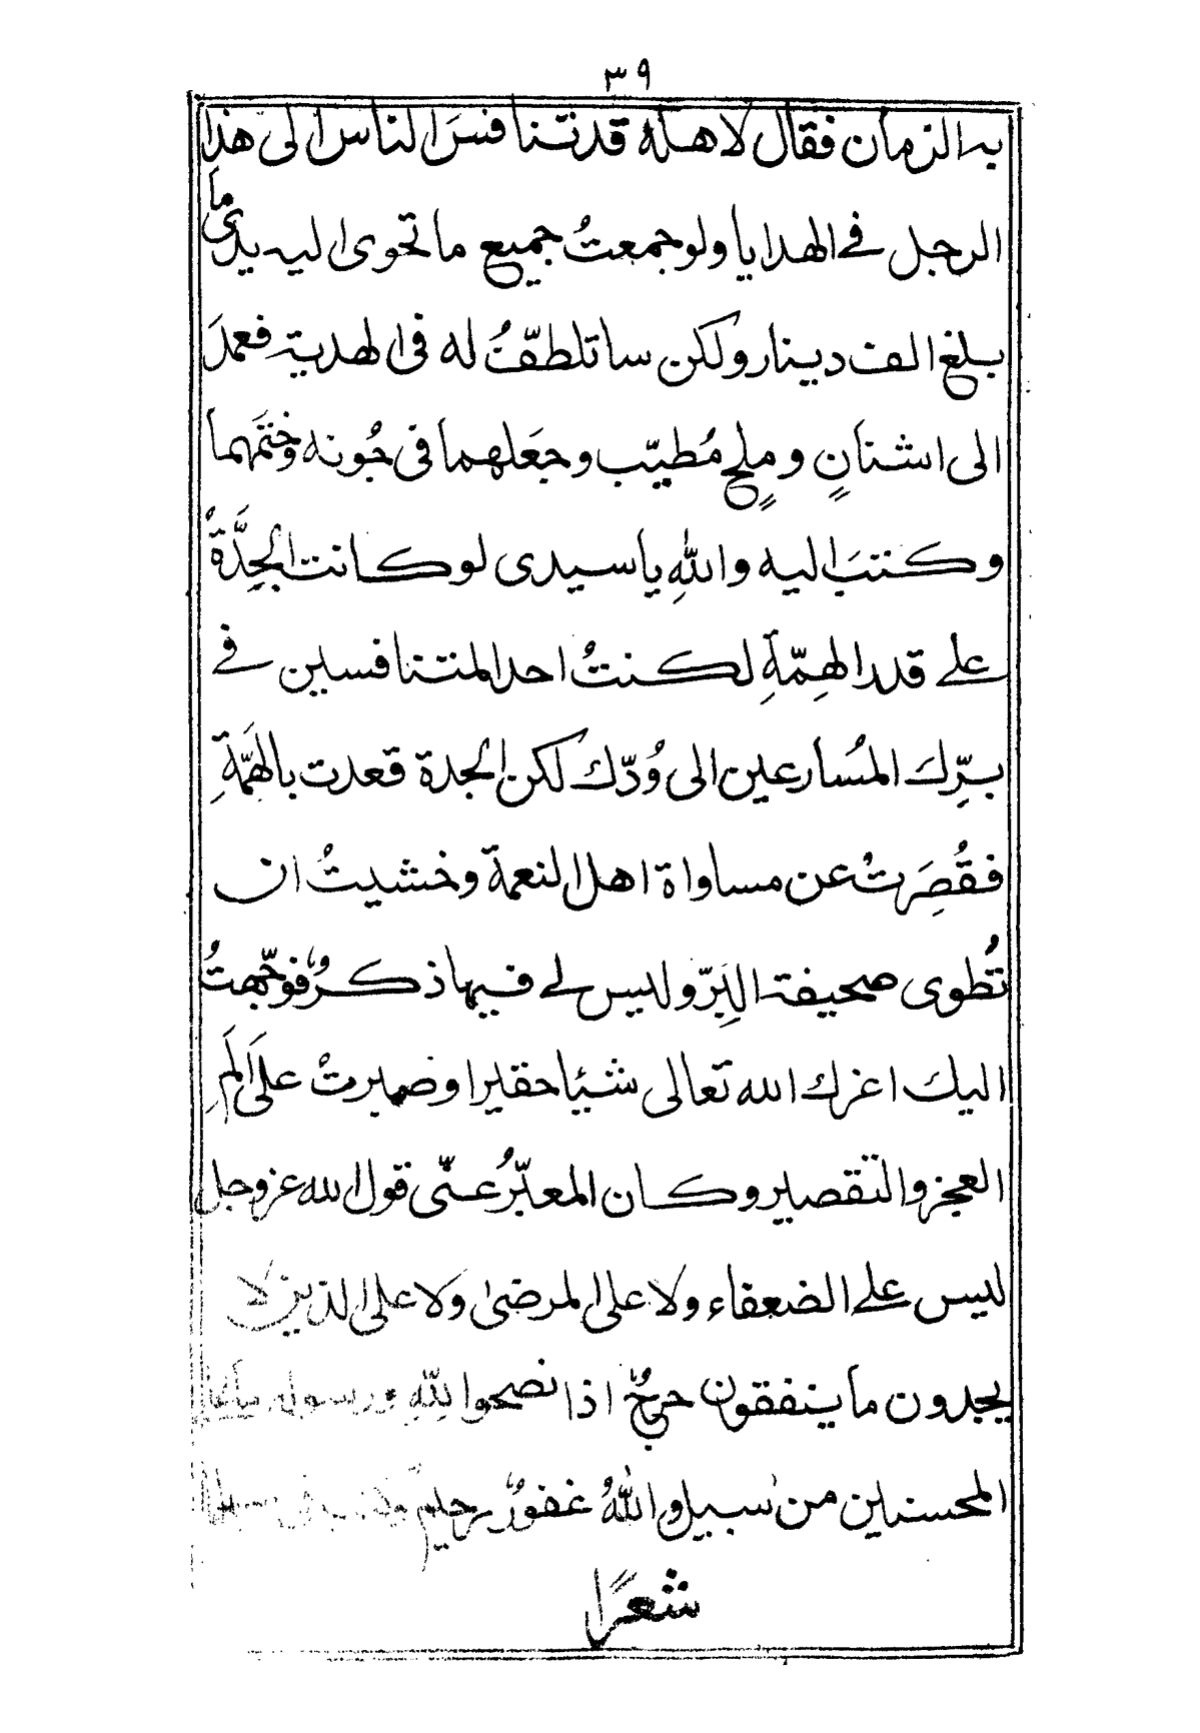 ٣٩
به الزمان فقال لاهله قد تنافسَ الناس الى هذا
الرجل في الهدايا ولو جمعتُ جميع ما تحوى اليه يدى ما
بلغ الف دينار ولكن ساتلطّفُ له فى الهدية فعمدَ
الى اشنانٍ وملحٍ مُطيّب وجَعلهما فى جُونه وخَتَمَهما
وكتبَ اليه واللهِ يا سيدى لو كانت الجِدَّةُ
على قدر الهِمّةِ لكنتُ احد المتنافسين في
بِرّك المُسارعين الى وُدّك لكن الجدة قعدت بالهَمّةِ
فقُصِرَتْ عن مساواة اهل النعمة وخشيتُ ان
تُطوى صحيفة البِرّ وليس لي فيها ذكرٌ فوجّهتُ
اليك اعزك الله تعالى شيئا حقيرا وصبرتُ علىَ اَلَمِ
العجز والتقصير وكان المعبّرُ عنّى قول الله عز وجل
ليس على الضعفاء ولا على المرضىٰ ولا على الذين لا
يجدون ما ينفقون حرجٌ اذا نصحوا للهِ ورسوله ما على
المحسنين من سبيل واللهُ غفورٌ رحيمٌ
شعرًا